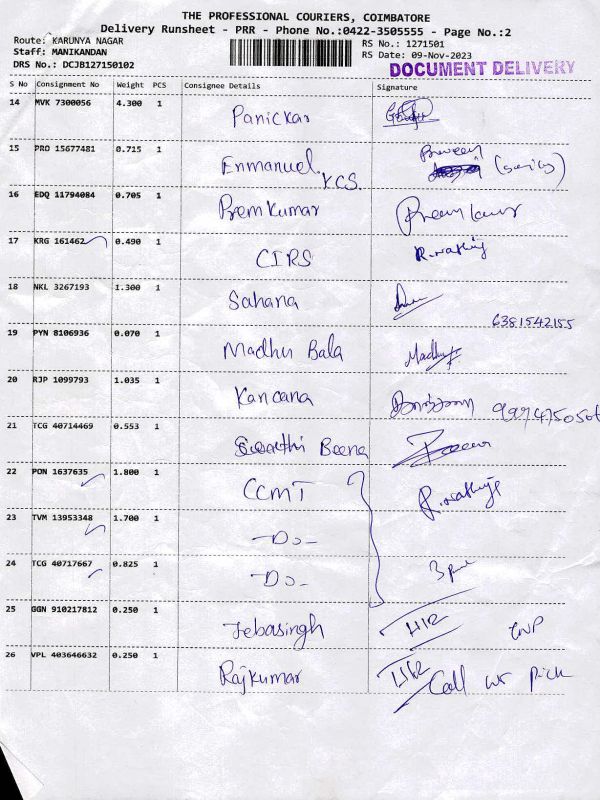 THE PROFESSIONAL COURIERS, COIMBATORE
Delivery Runsheet - PRR - Phone No.:0422-3505555 - Page No.:2
Route: KARUNYA NAGAR RS No.: 1271501
Staff: MANIKANDAN RS Date: 09-Nov-2023
DRS No.: DCJB127150102 DOCUMENT DELIVERY
S No Consignment No Weight PCS Consignee Details Signature
14 MVK 7300056 4.300 1 Panickar
15 PRO 15677481 0.715 1 Enmanuel. KCS. Praveen
16 EDQ 11794084 0.705 1 Premkumar Premkumar
17 KRG 161462 0.490 1 CIRS R.
18 NKL 3267193 1.300 1 Sahana
6381542155
19 PYN 8106936 0.070 1 Madhu Bala Madhu
20 RJP 1099793 1.035 1 Kancana
21 TCG 40714469 0.553 1 Beena
22 PON 1637635 1.800 1 CCMT R.
23 TVM 13953348 1.700 1 -Do-
24 TCG 40717667 0.825 1 -Do-
25 GGN 910217812 0.250 1 Jebasingh
26 VPL 403646632 0.250 1 Rajkumar Call